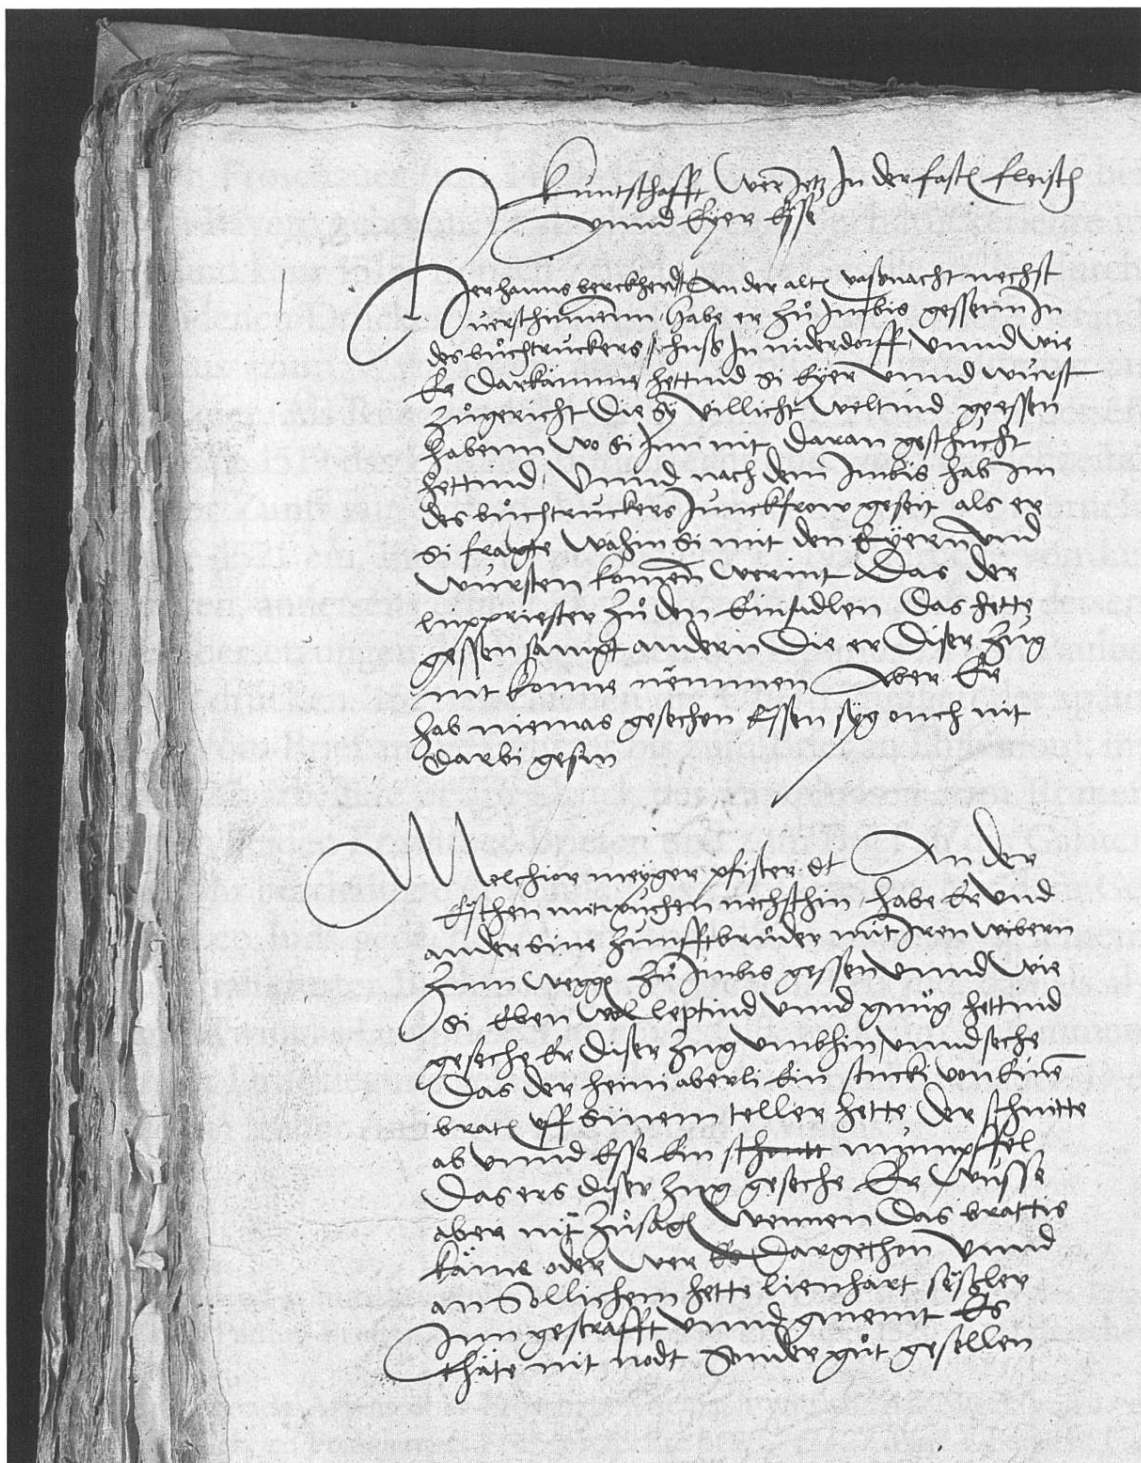 Kuntschafft Wer Jetz In der fasten fleisch
unnd Eyer Esse
Her hanns berckherd dt An der alten vassnacht nechst
verschinnenn / habe er zů Imbis gessenn In
des bůchtruckers huss In niderdorff unnd wie
Er darkämme hettind si Eyer unnd würst
zůgericht die sy villicht weltind geessen
habenn wo si Inn nit daran geschücht
hettind / Unnd nach dem Imbis hab Im
des bůchtruckers Junckfrow geseit als er
si fragte wahin si mit den Eyern und
würsten komen werint / Das der
luppriester zů den Einsidlen das hette
gessen sampt andern die er diser Zyg
nit könne nemmen / Aber Er
hab niemas gesechen Essen syg ouch nit
darbi gesin
Melchior meyger pfister dt An der
Eschen mitwuchen nechsthin / habe Er und
ander sine Zunfftbrüder mit Iren wibern
Zum weggen zů Imbis gessen unnd wie
si Eben wol leptind unnd gnůg hettind
gesechen Er diser Zyg umbhin / unnd seche
Das der heini aberli Ein stucki von Einem
braten uff sinem teller hette der schnitte
ab unnd Esse Ein mumpffel
Das ers diser Zyg geseche Er wüsse
aber nit zůsagen Wennen das brattis
käme oder wer dargethon unnd
an Sollichem hette lienhart
Inn gestrafft unnd gmeint Es
thäte nit nodt Sonder gůt gesellen